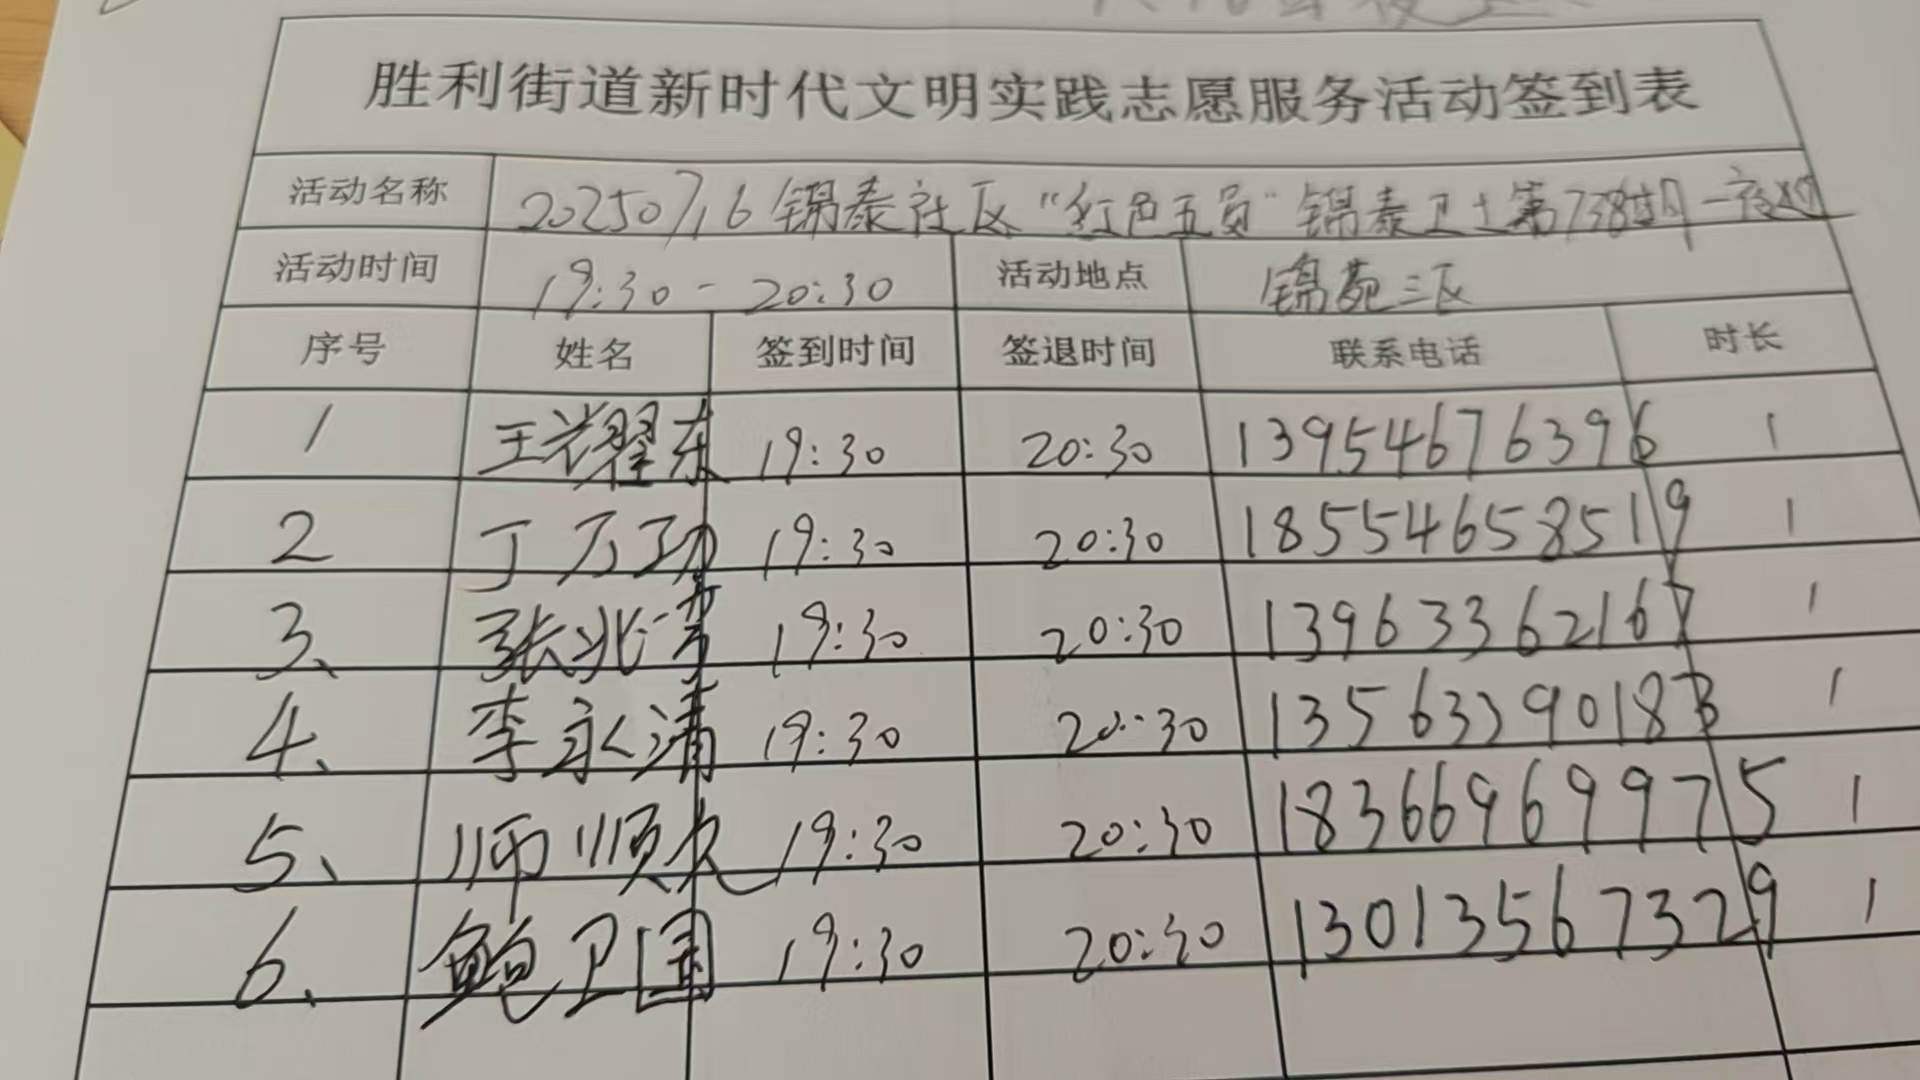 胜利街道新时代文明实践志愿服务活动签到表
活动名称 20250716 锦泰社区“红色五员”锦泰卫士第738期一夜巡
活动时间 19:30-20:30 活动地点 锦苑三区
序号 姓名 签到时间 签退时间 联系电话 时长
1 王耀东 19:30 20:30 13954676396 1
2 丁万功 19:30 20:30 18554658519 1
3、 张兆芳 19:30 20:30 13963362167 1
4、 李永清 19:30 20:30 13563390183 1
5、 师顺久 19:30 20:30 18366969975 1
6、 鲍卫国 19:30 20:30 13013567329 1